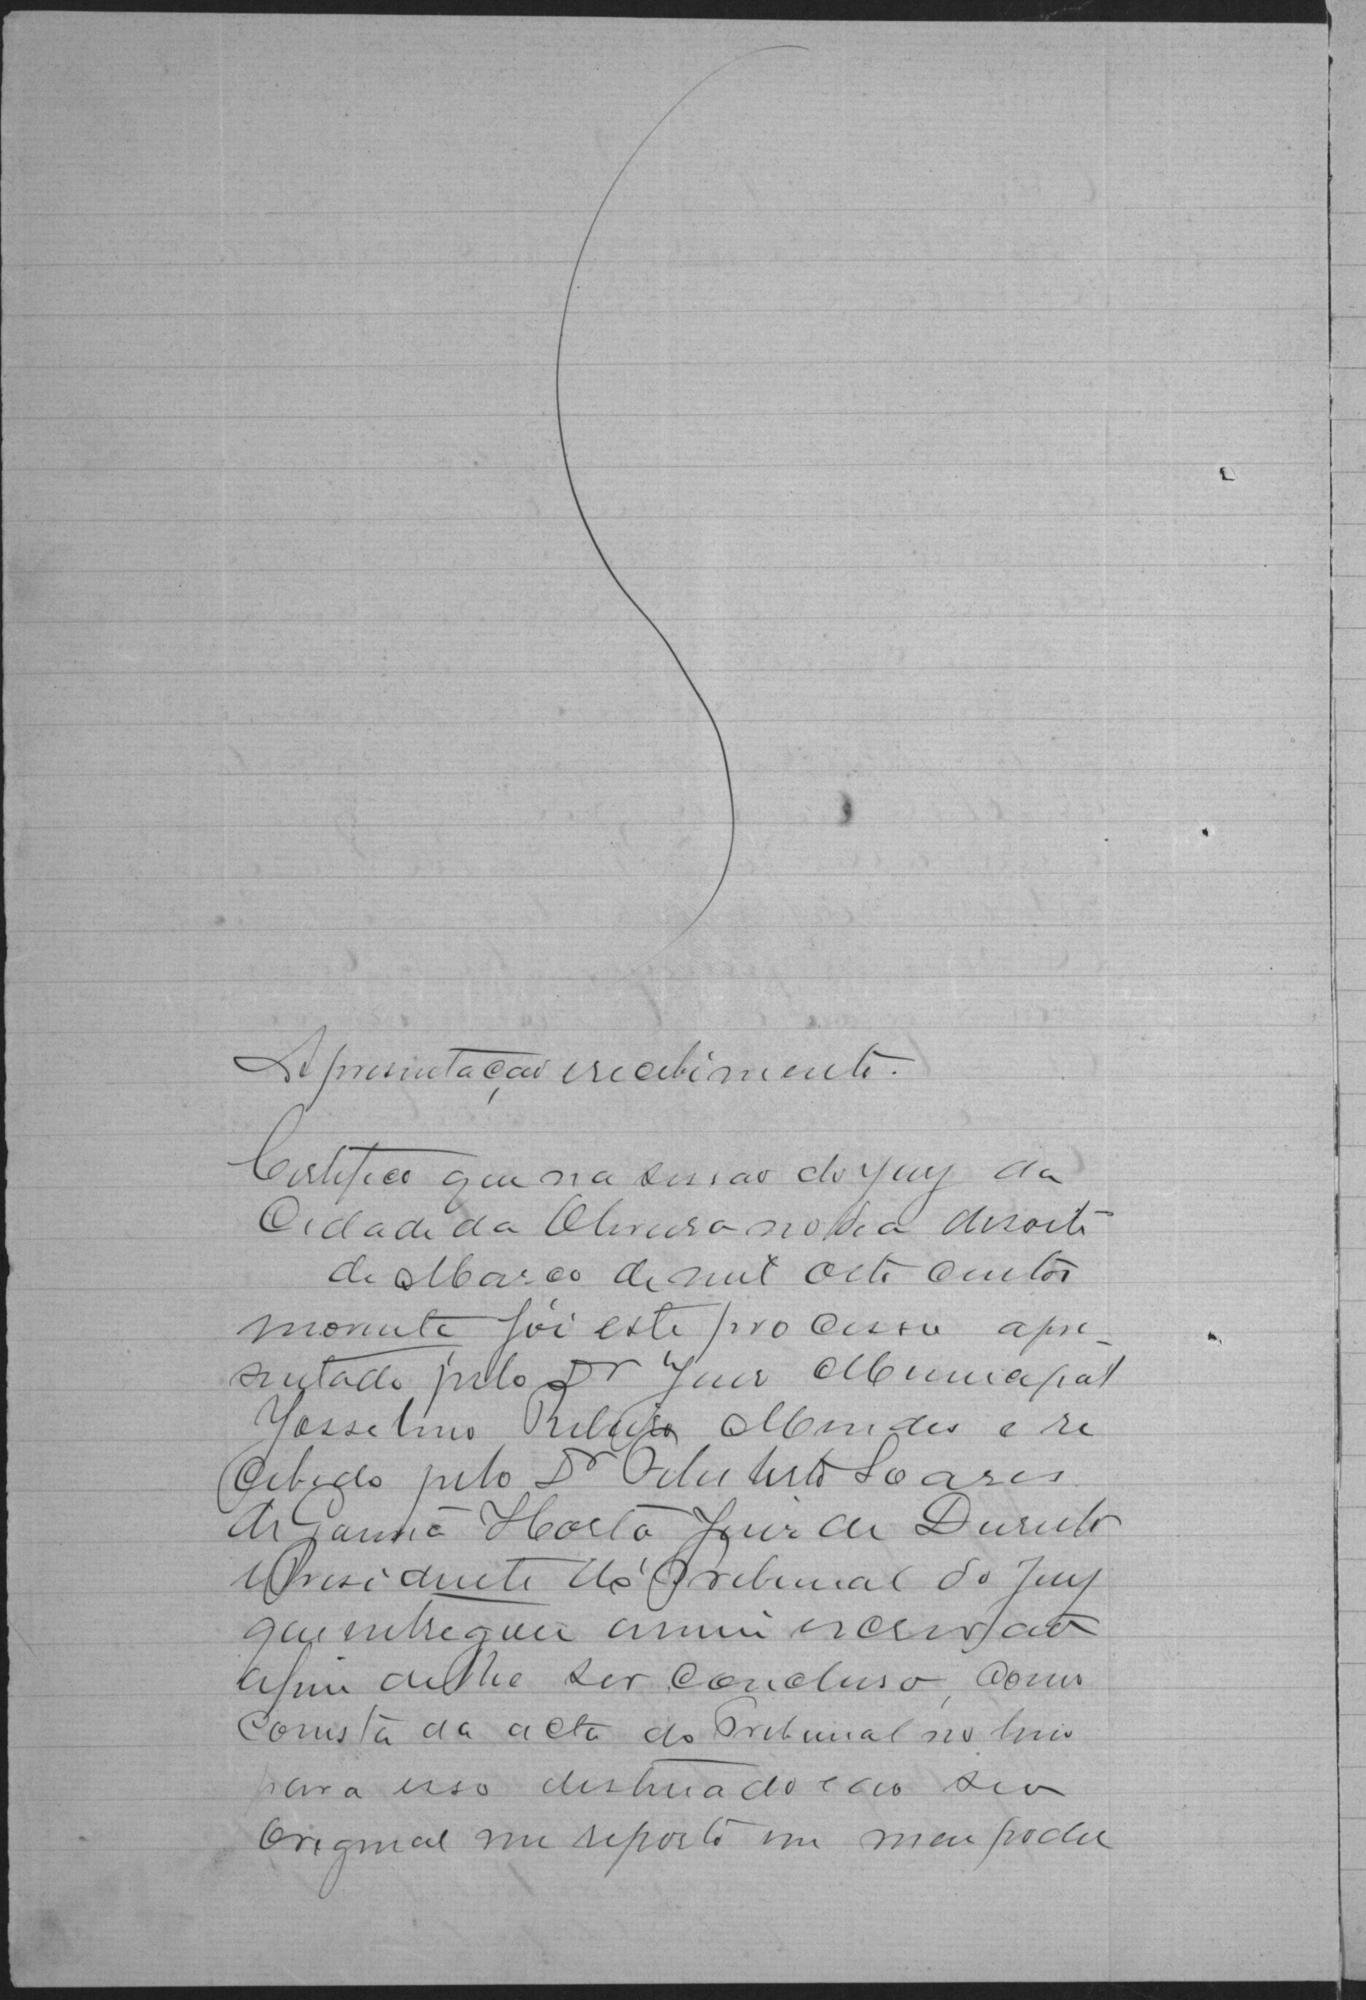 Apresentação e recebimento.
Certifico que na sessão do Jury da
Cidade da Oliveira no dia desoito
de Março de mil oito centos
noventa foi este processo apre-
sentado pelo Dr Juiz Municipal
Josselino Ribeiro Mendes e re
cebido pelo Dr Soares
de Horta Juiz de Direito
e Presidente do Tribunal do Jury
que entregou a mim escrivão
afim de lhe ser concluso, como
consta da acta do Tribunal no livro
para isso destinado e ao seu
Original me reporto em meu poder